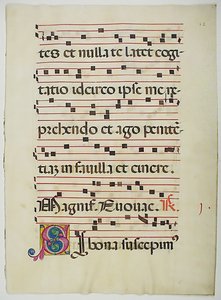 tes et nulla te latet cogi
tatio idcirco ipse me re
prehendo et ago penite
tiaz in favilla et cinere.
Magnif. Euouae.
Si bona suscepim⁹